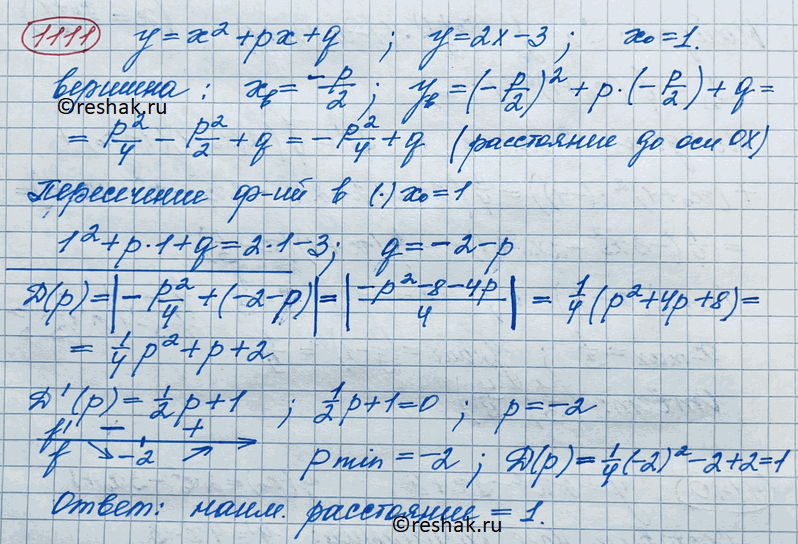 1111 y = x² + px + q ; y = 2x − 3 ; x₀ = 1.
вершина : xв = −p/2 ; yв = (−p/2)² + p·(−p/2) + q =
©reshak.ru
= p²/4 − p²/2 + q = −p²/4 + q (расстояние до оси OX)
Пересечение ф-ий в (·) x₀ = 1
1² + p·1 + q = 2·1 − 3 ; q = −2 − p
D(p) = |−p²/4 + (−2 − p)| = |(−p² − 8 − 4p)/4| = 1/4 (p² + 4p + 8) =
= 1/4 p² + p + 2
D'(p) = 1/2 p + 1 ; 1/2 p + 1 = 0 ; p = −2
f' − +
f ↘ −2 ↗ pmin = −2 ; D(p) = 1/4 (−2)² − 2 + 2 = 1
Ответ: наим. расстояние = 1.
©reshak.ru